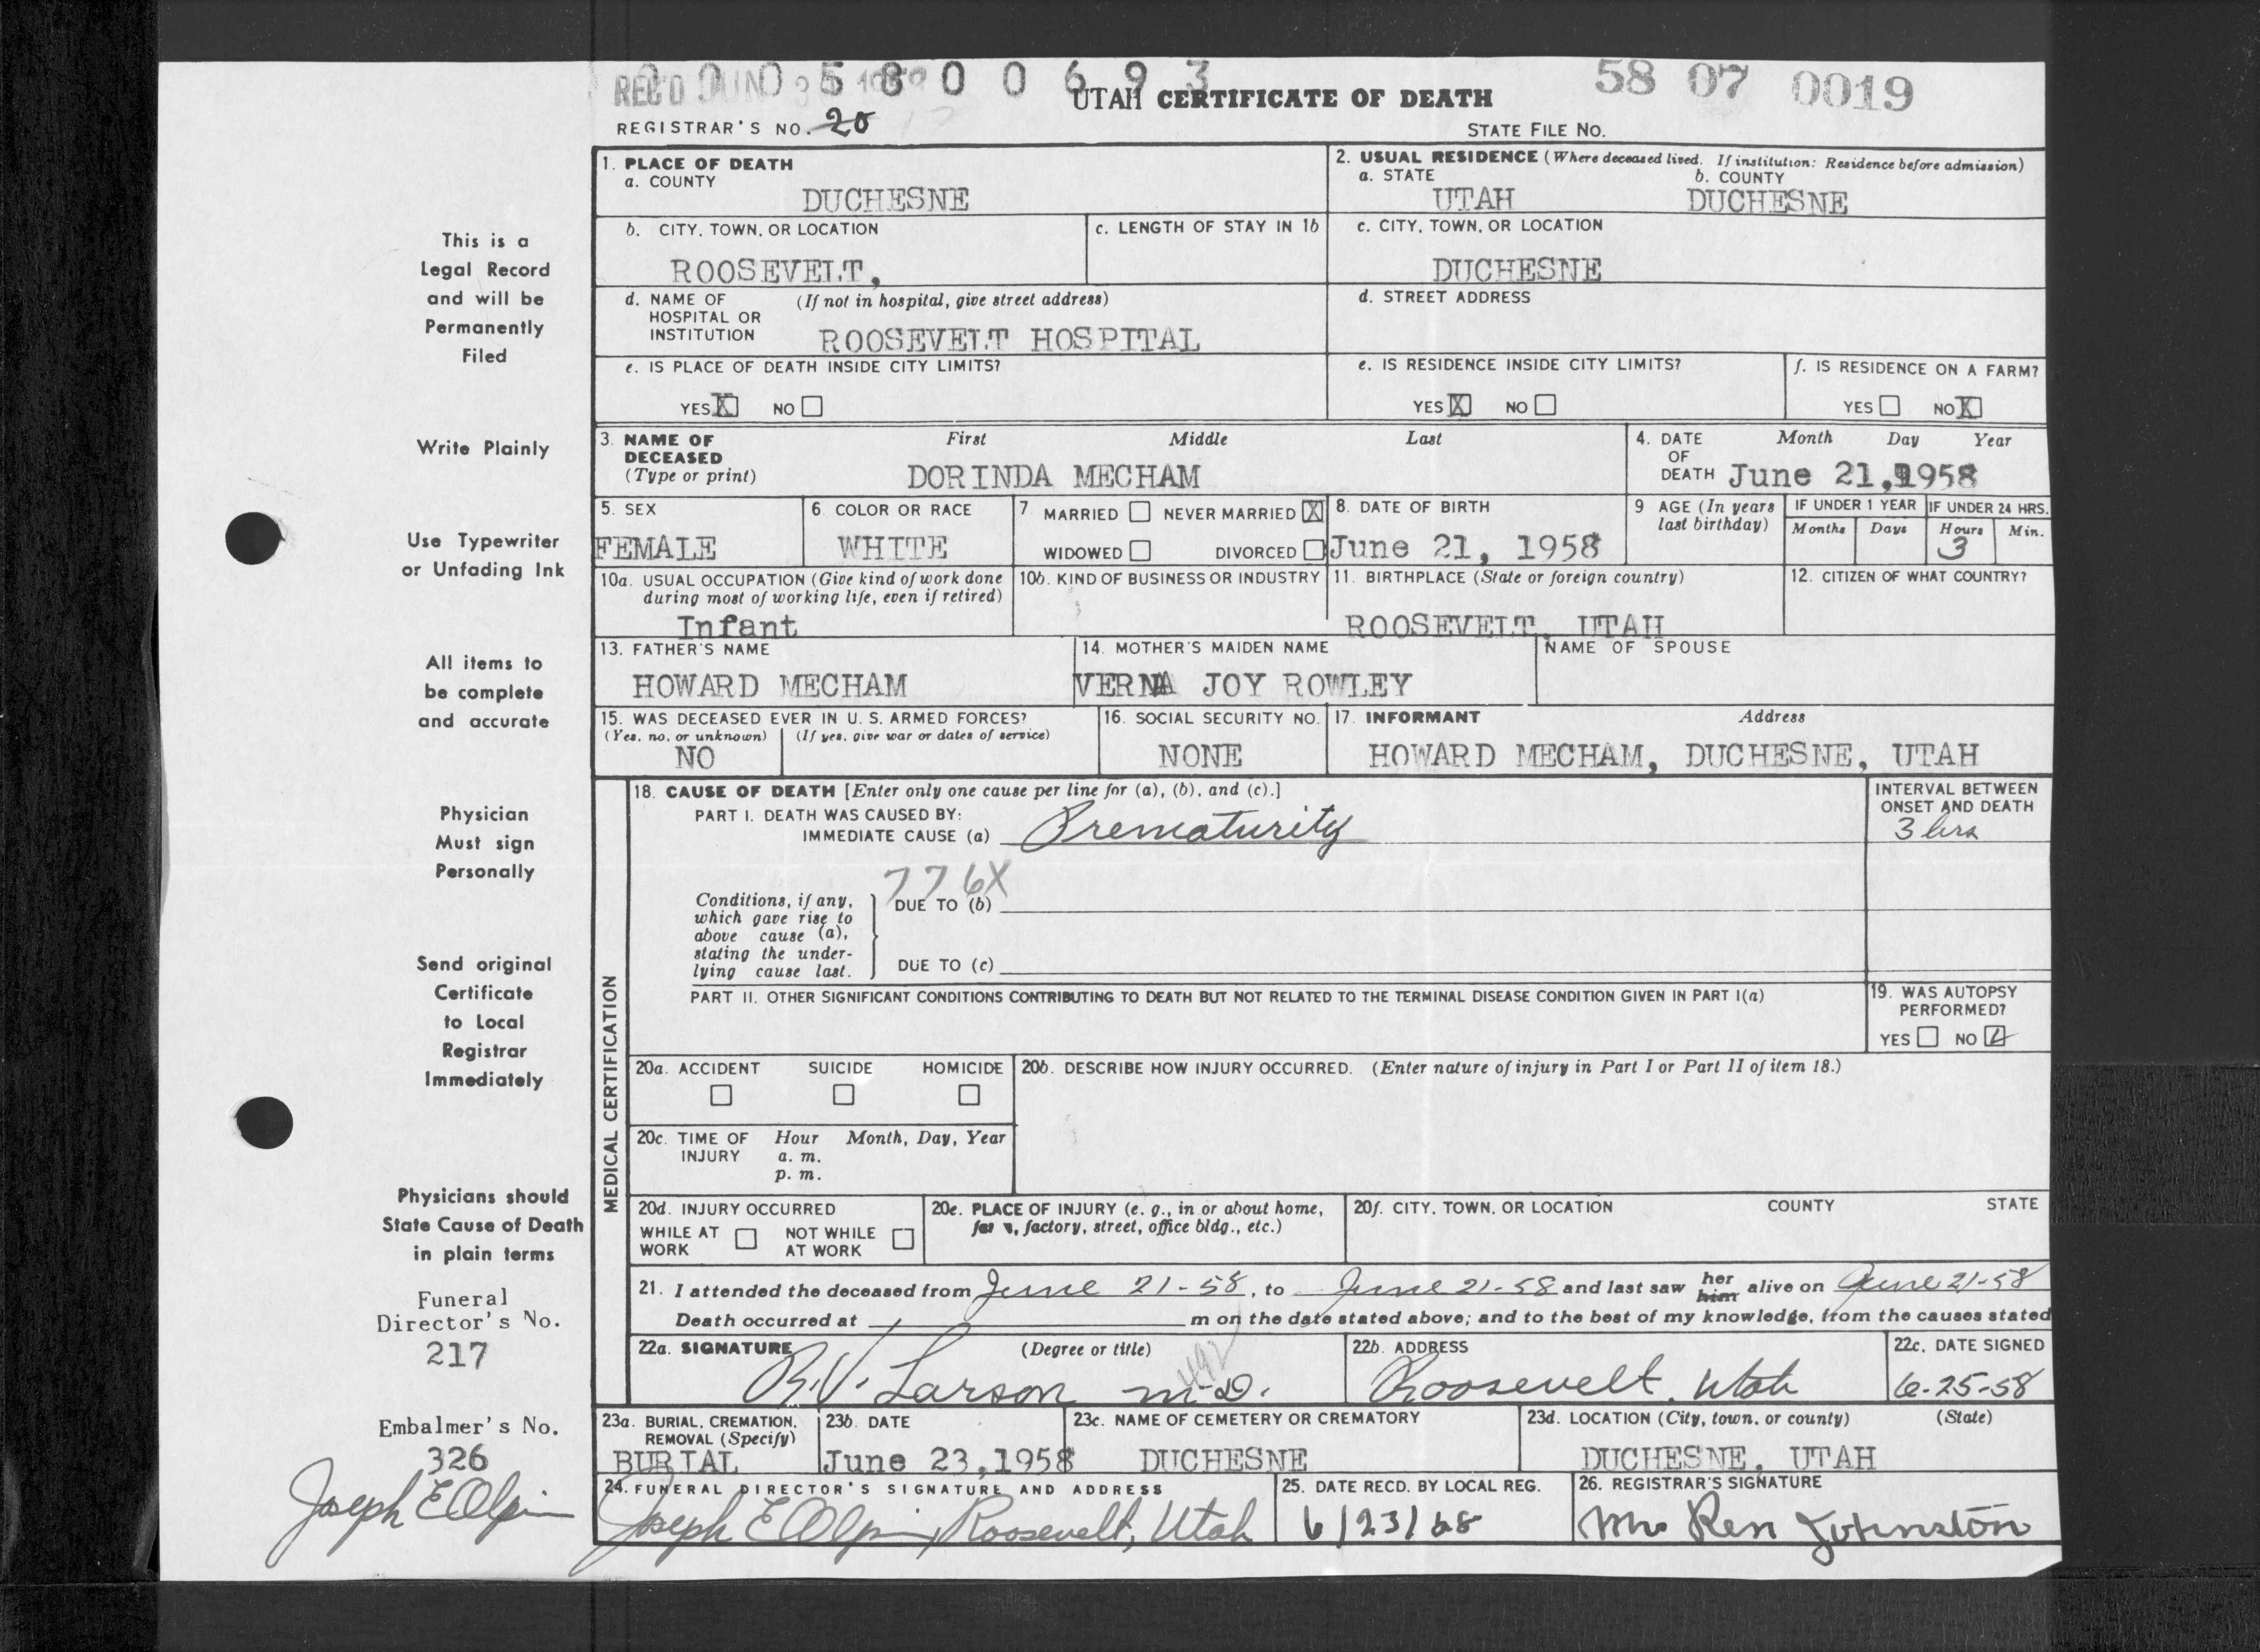 REC'D JUN 30 1958
0 0 0 5 8 0 0 6 9 3
58 07 0019
UTAH CERTIFICATE OF DEATH
REGISTRAR'S NO. 20
STATE FILE NO.
1. PLACE OF DEATH
a. COUNTY
DUCHESNE
2. USUAL RESIDENCE (Where deceased lived. If institution: Residence before admission)
a. STATE b. COUNTY
UTAH DUCHESNE
b. CITY, TOWN, OR LOCATION
ROOSEVELT,
c. LENGTH OF STAY IN 1b
c. CITY, TOWN, OR LOCATION
DUCHESNE
d. NAME OF (If not in hospital, give street address)
HOSPITAL OR
INSTITUTION ROOSEVELT HOSPITAL
d. STREET ADDRESS
e. IS PLACE OF DEATH INSIDE CITY LIMITS?
YES X NO
e. IS RESIDENCE INSIDE CITY LIMITS?
YES X NO
f. IS RESIDENCE ON A FARM?
YES NO X
3. NAME OF First Middle Last
DECEASED
(Type or print) DORINDA MECHAM
4. DATE Month Day Year
OF
DEATH June 21, 1958
5. SEX
FEMALE
6. COLOR OR RACE
WHITE
7. MARRIED NEVER MARRIED X
WIDOWED DIVORCED
8. DATE OF BIRTH
June 21, 1958
9 AGE (In years
last birthday)
IF UNDER 1 YEAR
Months Days
IF UNDER 24 HRS.
Hours Min.
3
10a. USUAL OCCUPATION (Give kind of work done
during most of working life, even if retired)
Infant
10b. KIND OF BUSINESS OR INDUSTRY
11. BIRTHPLACE (State or foreign country)
ROOSEVELT, UTAH
12. CITIZEN OF WHAT COUNTRY?
13. FATHER'S NAME
HOWARD MECHAM
14. MOTHER'S MAIDEN NAME
VERNA JOY ROWLEY
NAME OF SPOUSE
15. WAS DECEASED EVER IN U. S. ARMED FORCES?
(Yes, no, or unknown) (If yes, give war or dates of service)
NO
16. SOCIAL SECURITY NO.
NONE
17. INFORMANT Address
HOWARD MECHAM, DUCHESNE, UTAH
MEDICAL CERTIFICATION
18. CAUSE OF DEATH [Enter only one cause per line for (a), (b), and (c).]
PART I. DEATH WAS CAUSED BY:
IMMEDIATE CAUSE (a) Prematurity
INTERVAL BETWEEN
ONSET AND DEATH
3 hrs
776X
Conditions, if any,
which gave rise to
above cause (a),
stating the under-
lying cause last.
DUE TO (b)
DUE TO (c)
PART II. OTHER SIGNIFICANT CONDITIONS CONTRIBUTING TO DEATH BUT NOT RELATED TO THE TERMINAL DISEASE CONDITION GIVEN IN PART I(a)
19. WAS AUTOPSY
PERFORMED?
YES NO
20a. ACCIDENT SUICIDE HOMICIDE
20b. DESCRIBE HOW INJURY OCCURRED. (Enter nature of injury in Part I or Part II of item 18.)
20c. TIME OF Hour Month, Day, Year
INJURY a. m.
p. m.
20d. INJURY OCCURRED
WHILE AT NOT WHILE
WORK AT WORK
20e. PLACE OF INJURY (e. g., in or about home,
factory, street, office bldg., etc.)
20f. CITY, TOWN, OR LOCATION COUNTY STATE
21. I attended the deceased from June 21-58, to June 21-58 and last saw her him alive on June 21-58
Death occurred at m on the date stated above; and to the best of my knowledge, from the causes stated
22a. SIGNATURE (Degree or title)
R.V. Larson M.D.
22b. ADDRESS
Roosevelt, Utah
22c. DATE SIGNED
6-25-58
23a. BURIAL, CREMATION,
REMOVAL (Specify)
BURIAL
23b. DATE
June 23, 1958
23c. NAME OF CEMETERY OR CREMATORY
DUCHESNE
23d. LOCATION (City, town, or county) (State)
DUCHESNE, UTAH
24. FUNERAL DIRECTOR'S SIGNATURE AND ADDRESS
Joseph E Olpin, Roosevelt, Utah
25. DATE RECD. BY LOCAL REG.
6/23/58
26. REGISTRAR'S SIGNATURE
Mrs Ren Johnston
This is a
Legal Record
and will be
Permanently
Filed
Write Plainly
Use Typewriter
or Unfading Ink
All items to
be complete
and accurate
Physician
Must sign
Personally
Send original
Certificate
to Local
Registrar
Immediately
Physicians should
State Cause of Death
in plain terms
Funeral
Director's No.
217
Embalmer's No.
326
Joseph E Olpin